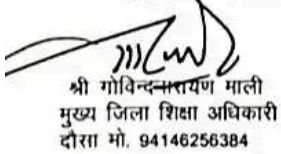 श्री गोविन्दनारायण माली
मुख्य जिला शिक्षा अधिकारी
दौसा मो. 94146256384